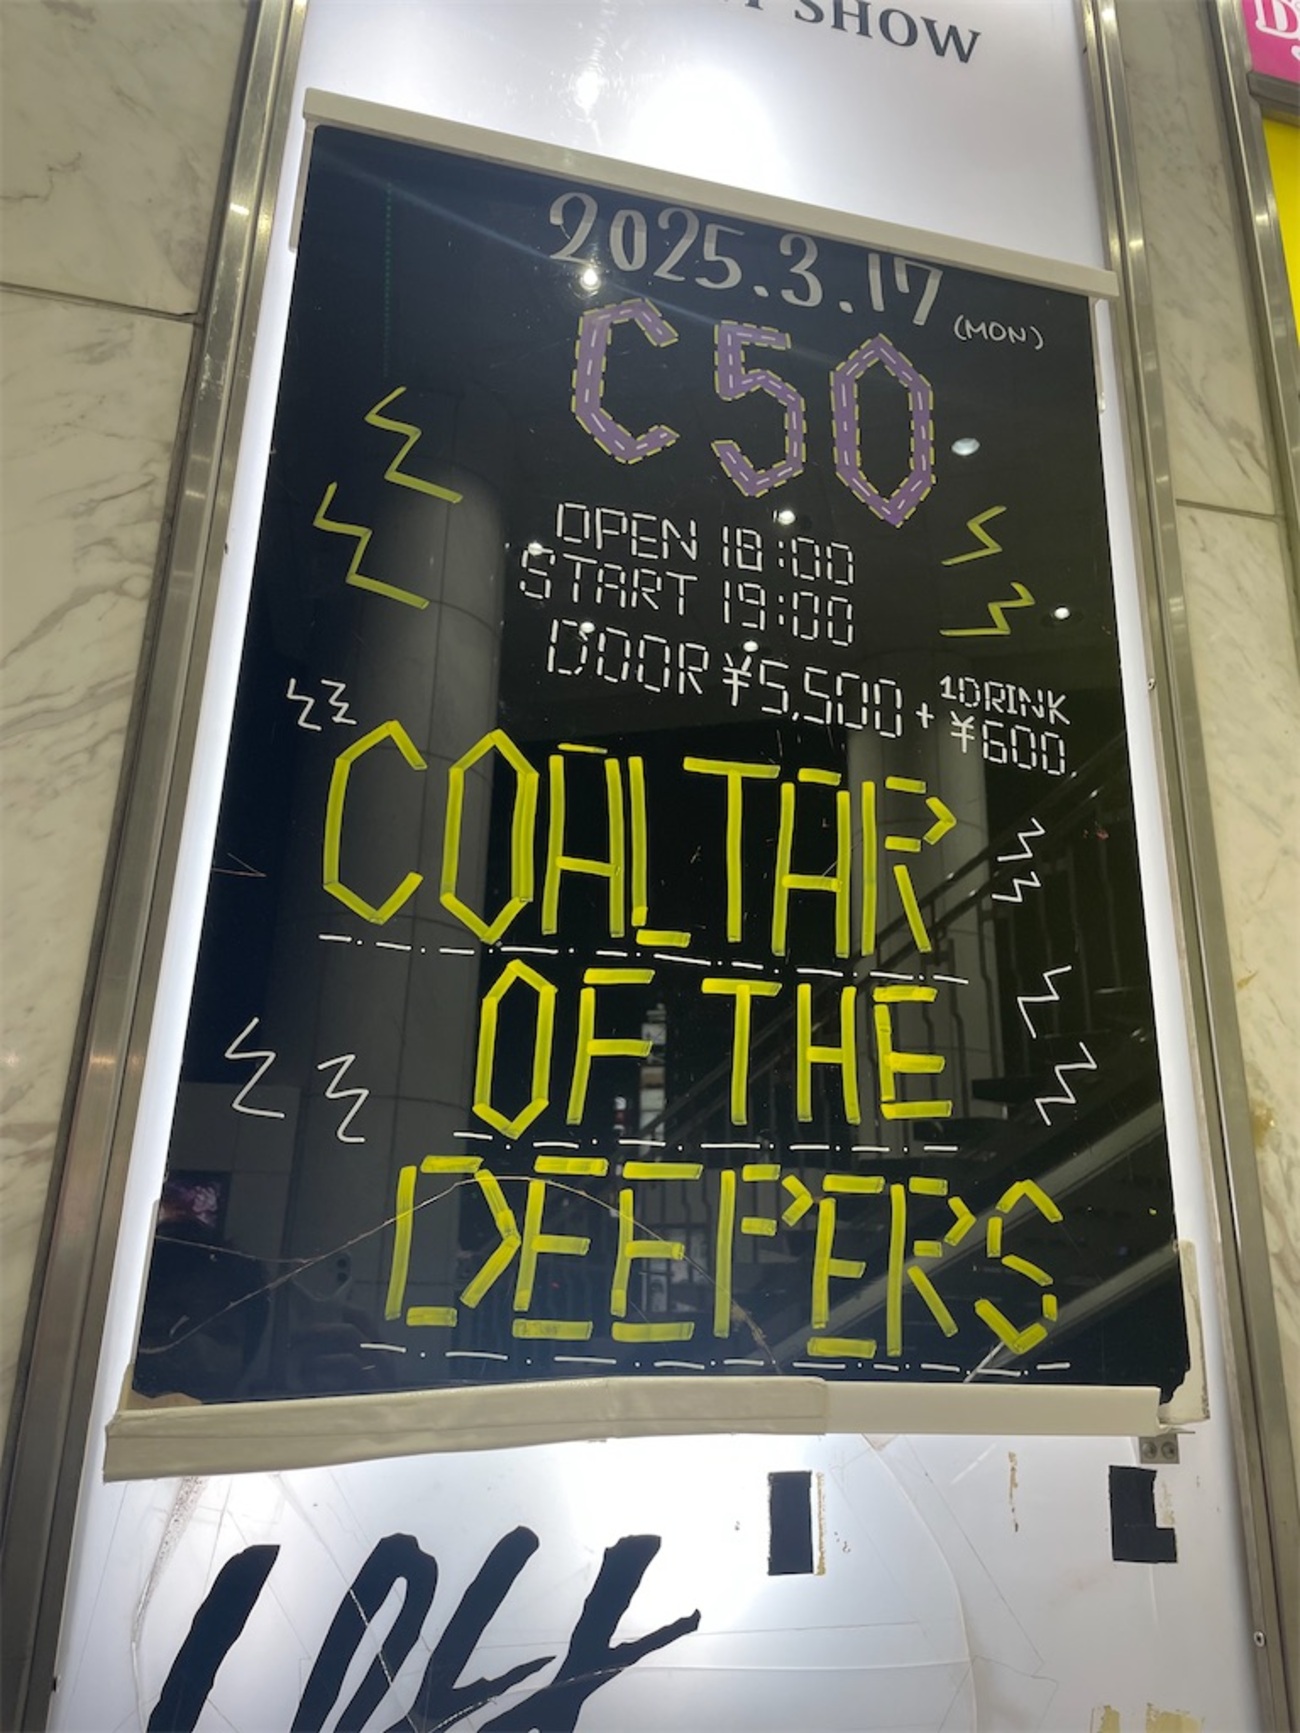 SHOW
2025.3.17
(MON)
C50
OPEN 18:00
START 19:00
DOOR ¥5,500 + 1DRINK ¥600.
COALTAR
OF THE
DEEPERS
LOFT